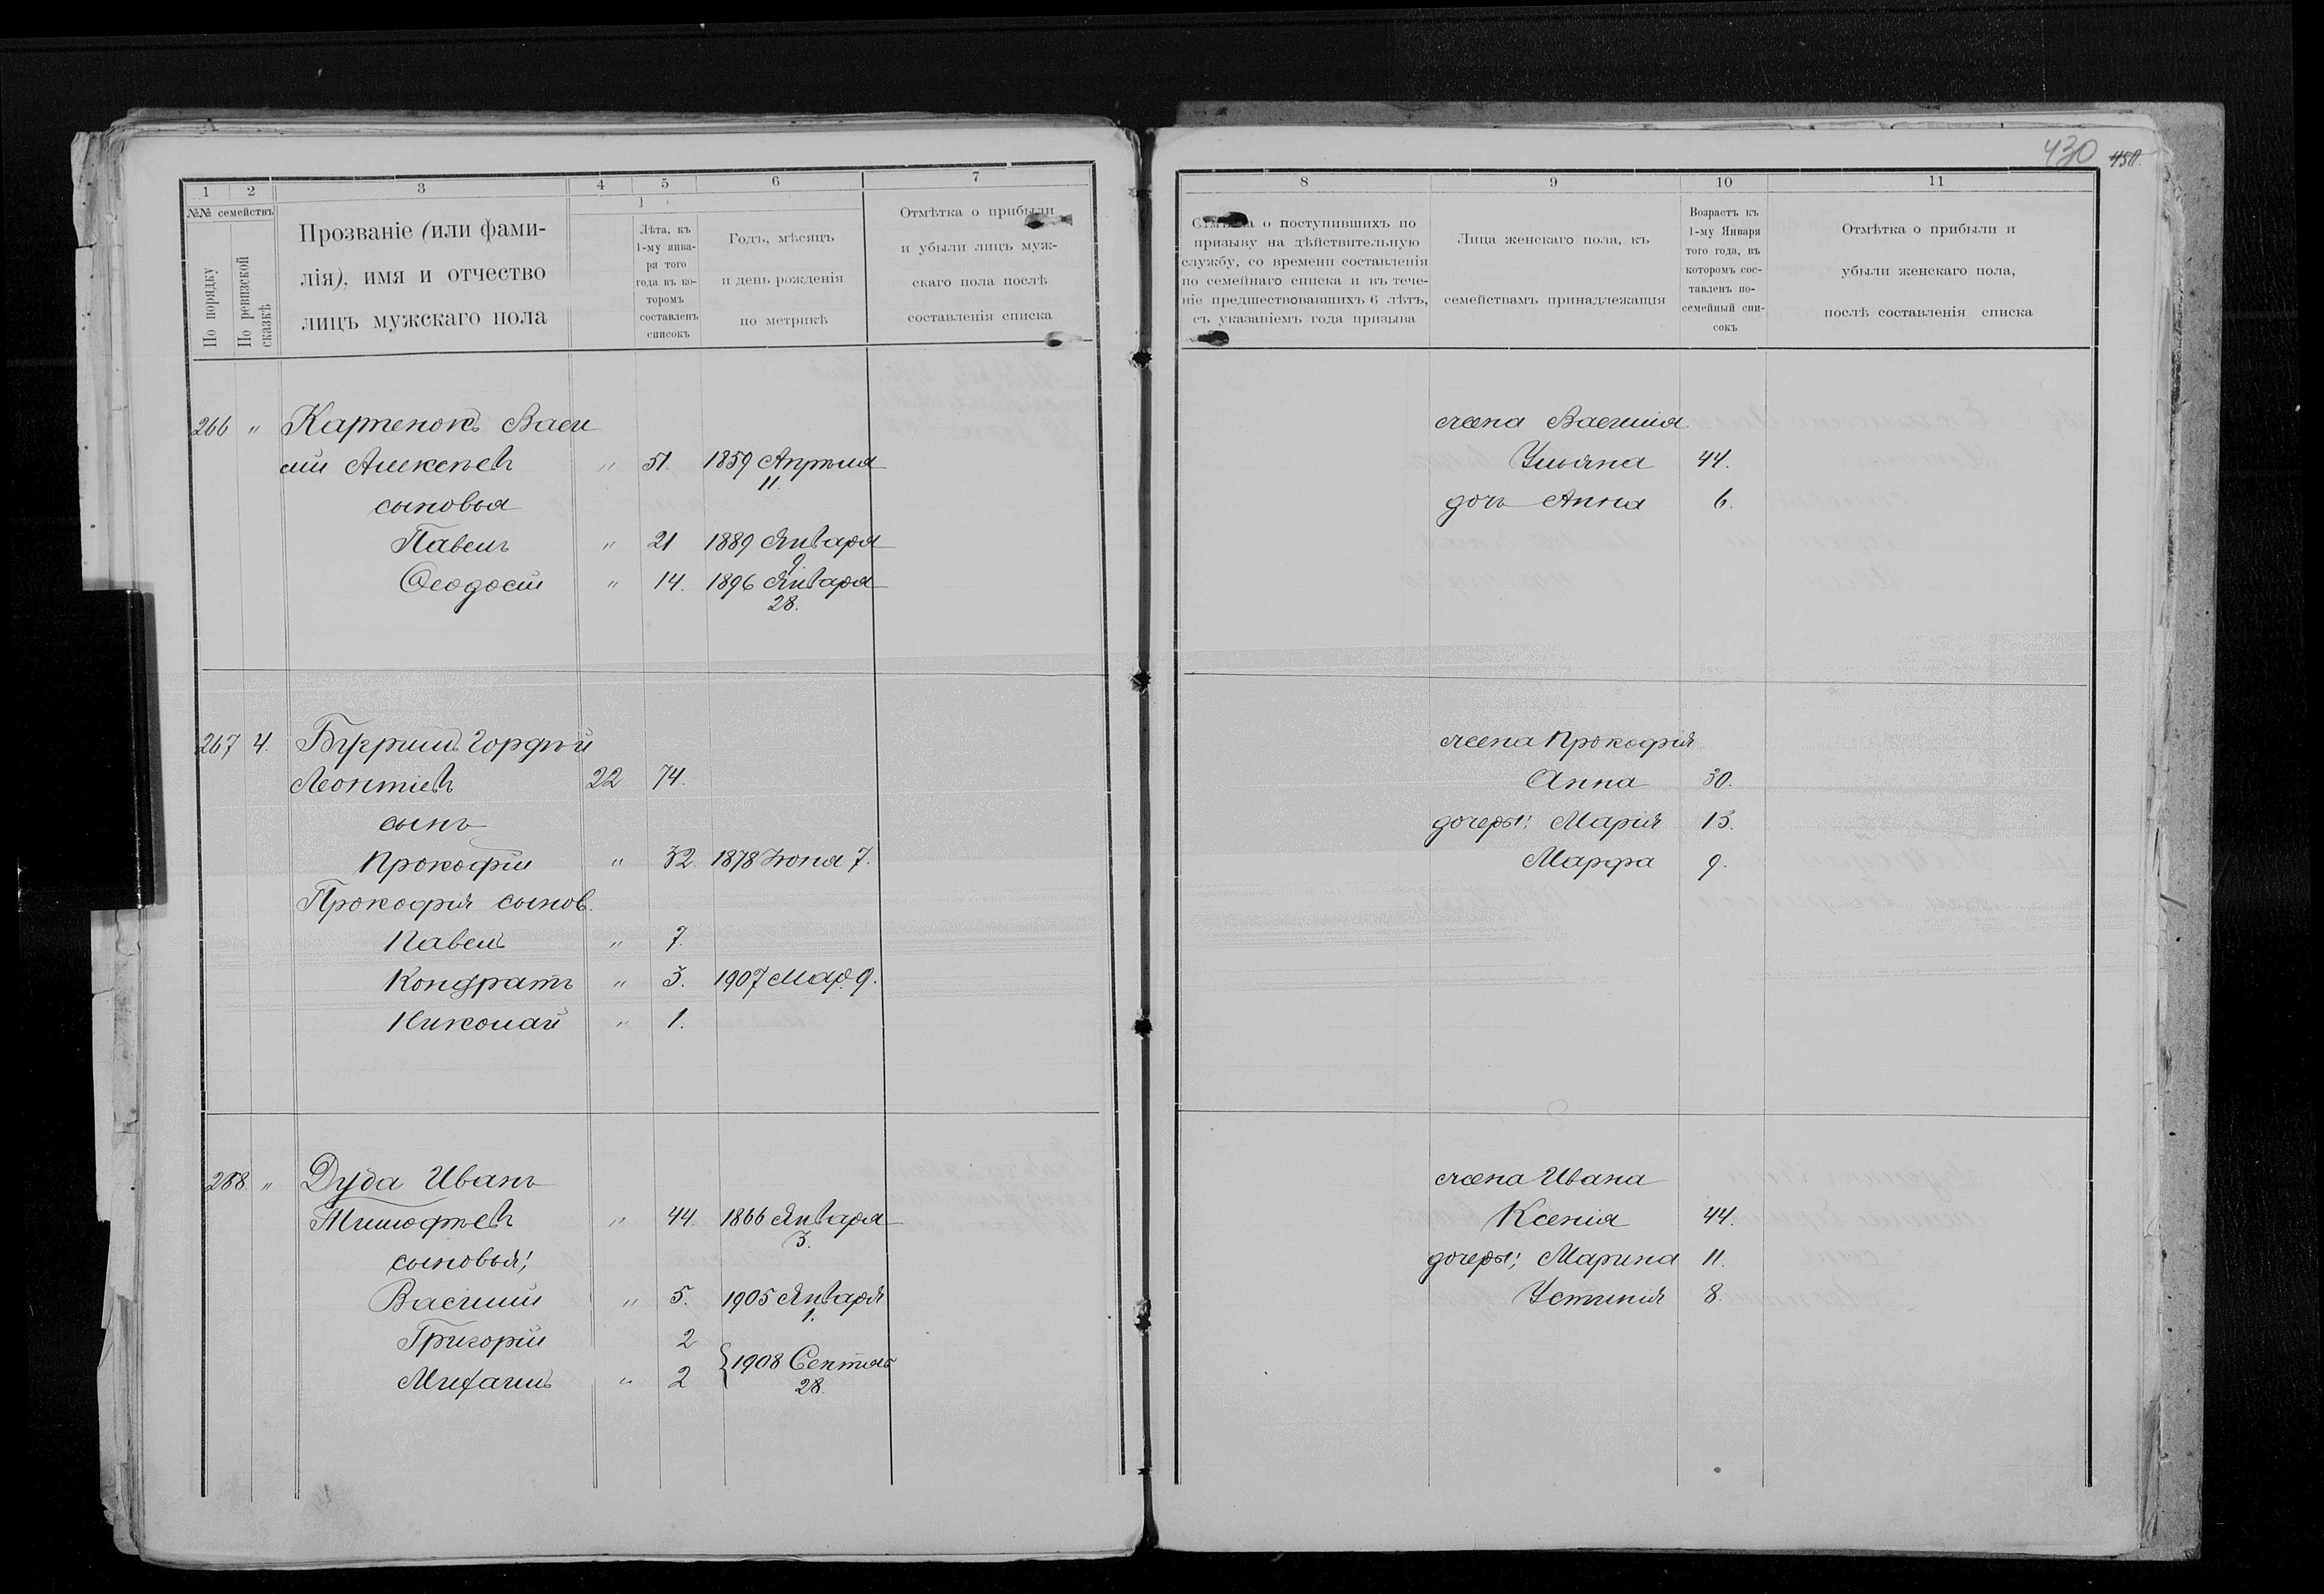 430 450.
1 2 3 4 5 6 7
№№ семействъ
По порядку
По ревизской сказкѣ
Прозваніе (или фами-
лія), имя и отчество
лицъ мужскаго пола
Лѣта, къ
1-му янва-
ря того
года въ ко-
торомъ
составленъ
списокъ
Годъ, мѣсяцъ
и день рожденія
по метрикѣ
Отмѣтка о прибыли
и убыли лицъ муж-
скаго пола послѣ
составленія списка
266 " Картенокъ Васи
лій Алексѣевъ " 51. 1859 Апрѣля
11.
сыновья
Павелъ " 21 1889 Января
9.
Ѳеодосій " 14. 1896 Января
28.
267 4. Гордѣй
Леонтіевъ 22 74.
сынъ
Прокофій " 32. 1878 Іюня 7.
Прокофія сынов.
Павелъ " 7.
Кондратъ " 3. 1907 Мар. 9.
Николай " 1.
268. " Дуда Иванъ
Тимофѣевъ " 44. 1866 Января
3.
сыновья;
Василій " 5. 1905 Января
1.
Григорій 2
Михаилъ " 2 1908 Сентяб
28.
8 9 10 11
о поступившихъ по
призыву на дѣйствительную
службу, со времени составленія
по семейнаго списка и въ тече-
ніе предшествовавшихъ 6 лѣтъ,
съ указаніемъ года призыва
Лица женскаго пола, къ
семействамъ принадлежащія
Возрастъ къ
1-му Января
того года, въ
которомъ сос-
тавленъ по-
семейный спи-
сокъ
Отмѣтка о прибыли и
убыли женскаго пола,
послѣ составленія списка
жена Василія
Ульяна 44.
дочь Анна 6.
жена Прокофія
Анна 30.
дочеры; Марія 13.
Марфа 9.
жена Ивана
Ксенія 44.
дочеры; Марина 11.
Устинія 8.